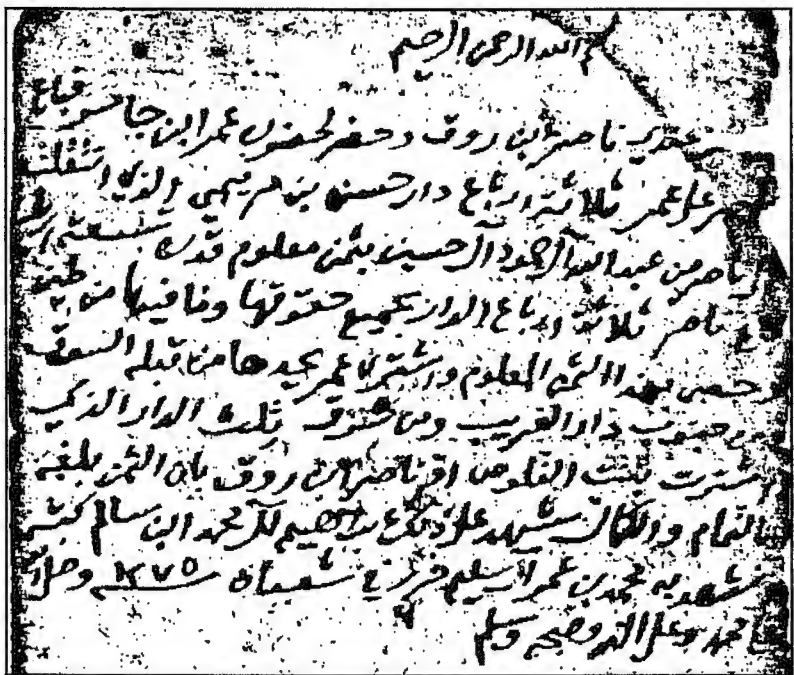 الله الرحمن الرحيم
ناصر ابن روق وحضر لحضوره عمر ابن جاسر فباع
ناصر على عمر ثلاثة ارباع دار حسن بن الذي انتقلت
ناصر من عبد الله آل حمود آل حسين بثمن معلوم قدره
باع ناصر ثلاثة ارباع الدار بجميع حقوقها وما فيها من طين
وحصى بهذا الثمن المعلوم واشترا عمر يحدها من قبله السوق
ومن جنوب دار الغريب ومن شرق ثلث الدار الذي
اشترت بنت اقر ناصر ابن روق بان الثمن بلغه
بالتمام والكمال شهد على ذلك ابراهيم آل محمد ابن سالم كتبه
وشهد به محمد بن عمر آل سليم في شعبان سنه ١٢٧٥ وصلى الله
على محمد وعلى اله وصحبه وسلم